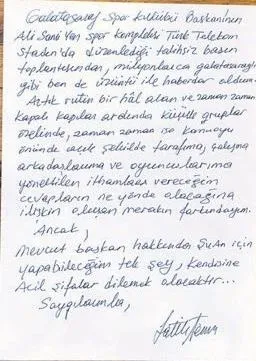 Galatasaray Spor Kulübü Başkanı'nın
Ali Sami Yen Spor Kompleksi Türk Telekom
Stadı'nda düzenlediği talihsiz basın
toplantısından, milyonlarca galatasaraylı
gibi ben de üzüntü ile haberdar oldum.
Artık rutin bir hâl alan ve zaman zaman
kapalı kapılar ardında küçük gruplar
özelinde, zaman zaman ise kamuoyu
önünde açık şekilde tarafıma, çalışma
arkadaşlarıma ve oyuncularıma
yöneltilen ithamlara vereceğim
cevapların ne yönde olacağına
ilişkin oluşan merakın farkındayım.
Ancak,
mevcut başkan hakkında şu an için
yapabileceğim tek şey, kendisine
Acil şifalar dilemek olacaktır...
Saygılarımla,
Fatih Terim